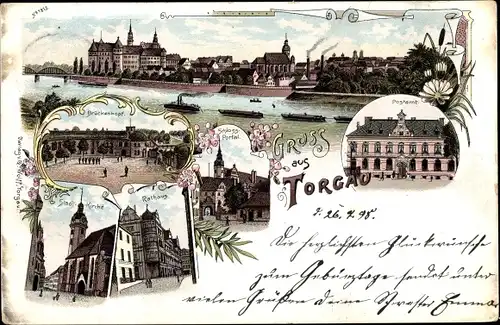 Postamt.
Brückenkopf.
Schloss
Portal.
Gruss
aus
Torgau
Stadt-Kirche
Rathaus.
d. 26. 7. 98.
Die herzlichsten Glückwünsche
zum Geburtstage sendet unter
vielen Grüßen deine Schwester Emma.